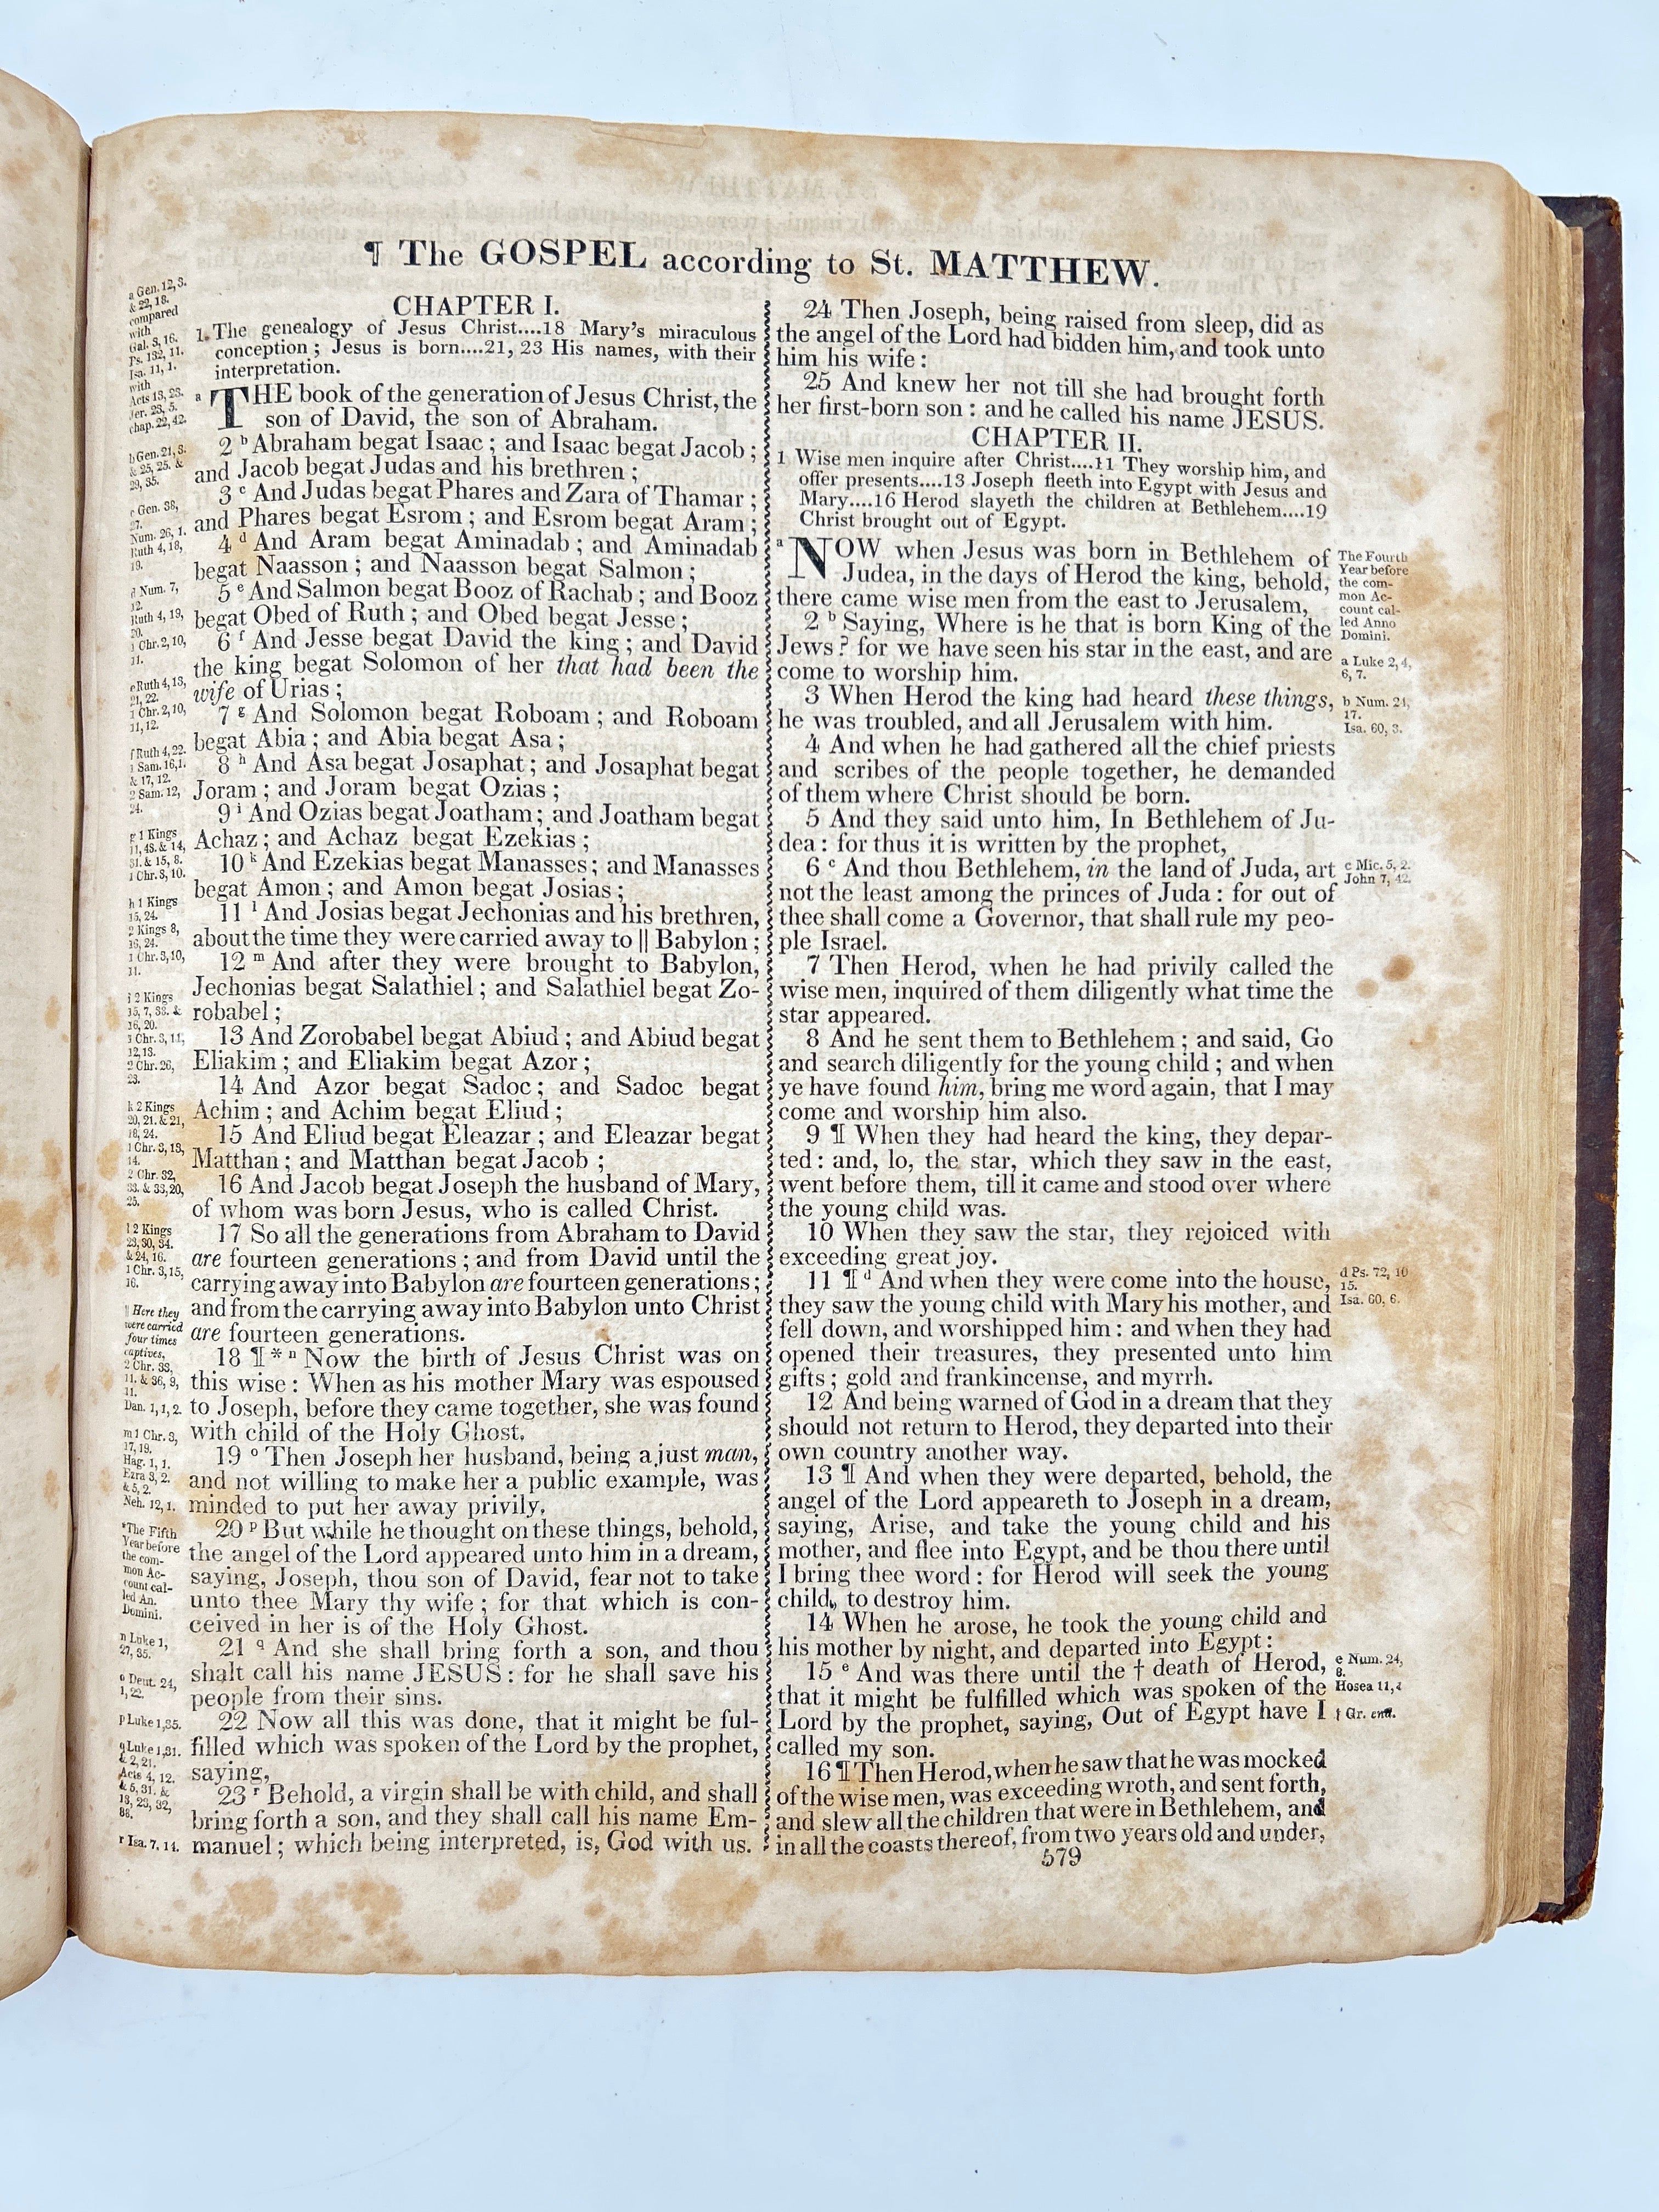 ¶ The GOSPEL according to St. MATTHEW.
a Gen. 12, 3.
& 22, 18.
compared
with
Gal. 3, 16.
Ps. 132, 11.
Isa. 11, 1.
with
Acts 13, 23.
Jer. 23, 5.
chap. 22, 42.
b Gen. 21, 3.
& 25, 25. &
29, 35.
c Gen. 38,
27.
Num. 26, 1.
Ruth 4, 18,
19.
d Num. 7,
12.
Ruth 4, 19,
20.
1 Chr. 2, 10,
11.
e Ruth 4, 13,
21, 22.
1 Chr. 2, 10,
11, 12.
f Ruth 4, 22.
1 Sam. 16, 1.
& 17, 12.
2 Sam. 12,
24.
g 1 Kings
11, 43. & 14,
31. & 15, 8.
1 Chr. 3, 10.
h 1 Kings
15, 24.
2 Kings 8,
16, 24.
1 Chr. 3, 10,
11.
i 2 Kings
15, 7, 38. &
16, 20.
1 Chr. 3, 11,
12, 13.
2 Chr. 26,
23.
k 2 Kings
20, 21. & 21,
18, 24.
1 Chr. 3, 13,
14.
2 Chr. 32,
33. & 33, 20,
25.
l 2 Kings
23, 30, 34.
& 24, 16.
1 Chr. 3, 15,
16.
|| Here they
were carried
four times
captives,
2 Chr. 33,
11. & 36, 9,
11.
Dan. 1, 1, 2.
m 1 Chr. 3,
17, 19.
Hag. 1, 1.
Ezra 3, 2.
& 5, 2.
Neh. 12, 1.
*The Fifth
Year before
the com-
mon Ac-
count cal-
led An.
Domini.
n Luke 1,
27, 35.
o Deut. 24,
1, 22.
p Luke 1, 35.
q Luke 1, 31.
& 2, 21.
Acts 4, 12.
& 5, 31. &
13, 23, 32,
38.
r Isa. 7, 14.
CHAPTER I.
1. The genealogy of Jesus Christ....18 Mary's miraculous
conception ; Jesus is born....21, 23 His names, with their
interpretation.
a THE book of the generation of Jesus Christ, the
son of David, the son of Abraham.
2 b Abraham begat Isaac ; and Isaac begat Jacob ;
and Jacob begat Judas and his brethren ;
3 c And Judas begat Phares and Zara of Thamar ;
and Phares begat Esrom ; and Esrom begat Aram ;
4 d And Aram begat Aminadab ; and Aminadab
begat Naasson ; and Naasson begat Salmon ;
5 e And Salmon begat Booz of Rachab ; and Booz
begat Obed of Ruth ; and Obed begat Jesse ;
6 f And Jesse begat David the king ; and David
the king begat Solomon of her that had been the
wife of Urias ;
7 g And Solomon begat Roboam ; and Roboam
begat Abia ; and Abia begat Asa ;
8 h And Asa begat Josaphat ; and Josaphat begat
Joram ; and Joram begat Ozias ;
9 i And Ozias begat Joatham ; and Joatham begat
Achaz ; and Achaz begat Ezekias ;
10 k And Ezekias begat Manasses ; and Manasses
begat Amon ; and Amon begat Josias ;
11 l And Josias begat Jechonias and his brethren,
about the time they were carried away to || Babylon ;
12 m And after they were brought to Babylon,
Jechonias begat Salathiel ; and Salathiel begat Zo-
robabel ;
13 And Zorobabel begat Abiud ; and Abiud begat
Eliakim ; and Eliakim begat Azor ;
14 And Azor begat Sadoc ; and Sadoc begat
Achim ; and Achim begat Eliud ;
15 And Eliud begat Eleazar ; and Eleazar begat
Matthan ; and Matthan begat Jacob ;
16 And Jacob begat Joseph the husband of Mary,
of whom was born Jesus, who is called Christ.
17 So all the generations from Abraham to David
are fourteen generations ; and from David until the
carrying away into Babylon are fourteen generations ;
and from the carrying away into Babylon unto Christ
are fourteen generations.
18 ¶ * n Now the birth of Jesus Christ was on
this wise : When as his mother Mary was espoused
to Joseph, before they came together, she was found
with child of the Holy Ghost.
19 o Then Joseph her husband, being a just man,
and not willing to make her a public example, was
minded to put her away privily.
20 p But while he thought on these things, behold,
the angel of the Lord appeared unto him in a dream,
saying, Joseph, thou son of David, fear not to take
unto thee Mary thy wife ; for that which is con-
ceived in her is of the Holy Ghost.
21 q And she shall bring forth a son, and thou
shalt call his name JESUS : for he shall save his
people from their sins.
22 Now all this was done, that it might be ful-
filled which was spoken of the Lord by the prophet,
saying,
23 r Behold, a virgin shall be with child, and shall
bring forth a son, and they shall call his name Em-
manuel ; which being interpreted, is, God with us.
24 Then Joseph, being raised from sleep, did as
the angel of the Lord had bidden him, and took unto
him his wife :
25 And knew her not till she had brought forth
her first-born son : and he called his name JESUS.
CHAPTER II.
1 Wise men inquire after Christ....11 They worship him, and
offer presents....13 Joseph fleeth into Egypt with Jesus and
Mary....16 Herod slayeth the children at Bethlehem....19
Christ brought out of Egypt.
a NOW when Jesus was born in Bethlehem of
Judea, in the days of Herod the king, behold,
there came wise men from the east to Jerusalem,
2 b Saying, Where is he that is born King of the
Jews ? for we have seen his star in the east, and are
come to worship him.
3 When Herod the king had heard these things,
he was troubled, and all Jerusalem with him.
4 And when he had gathered all the chief priests
and scribes of the people together, he demanded
of them where Christ should be born.
5 And they said unto him, In Bethlehem of Ju-
dea : for thus it is written by the prophet,
6 c And thou Bethlehem, in the land of Juda, art
not the least among the princes of Juda : for out of
thee shall come a Governor, that shall rule my peo-
ple Israel.
7 Then Herod, when he had privily called the
wise men, inquired of them diligently what time the
star appeared.
8 And he sent them to Bethlehem ; and said, Go
and search diligently for the young child ; and when
ye have found him, bring me word again, that I may
come and worship him also.
9 ¶ When they had heard the king, they depar-
ted : and, lo, the star, which they saw in the east,
went before them, till it came and stood over where
the young child was.
10 When they saw the star, they rejoiced with
exceeding great joy.
11 ¶ d And when they were come into the house,
they saw the young child with Mary his mother, and
fell down, and worshipped him : and when they had
opened their treasures, they presented unto him
gifts ; gold and frankincense, and myrrh.
12 And being warned of God in a dream that they
should not return to Herod, they departed into their
own country another way.
13 ¶ And when they were departed, behold, the
angel of the Lord appeareth to Joseph in a dream,
saying, Arise, and take the young child and his
mother, and flee into Egypt, and be thou there until
I bring thee word : for Herod will seek the young
child, to destroy him.
14 When he arose, he took the young child and
his mother by night, and departed into Egypt :
15 e And was there until the † death of Herod,
that it might be fulfilled which was spoken of the
Lord by the prophet, saying, Out of Egypt have I
called my son.
16 ¶ Then Herod, when he saw that he was mocked
of the wise men, was exceeding wroth, and sent forth,
and slew all the children that were in Bethlehem, and
in all the coasts thereof, from two years old and under,
The Fourth
Year before
the com-
mon Ac-
count cal-
led Anno
Domini.
a Luke 2, 4,
6, 7.
b Num. 24,
17.
Isa. 60, 3.
c Mic. 5, 2.
John 7, 42.
d Ps. 72, 10
15.
Isa. 60, 6.
e Num. 24,
8.
Hosea 11, 1
† Gr. end.
579